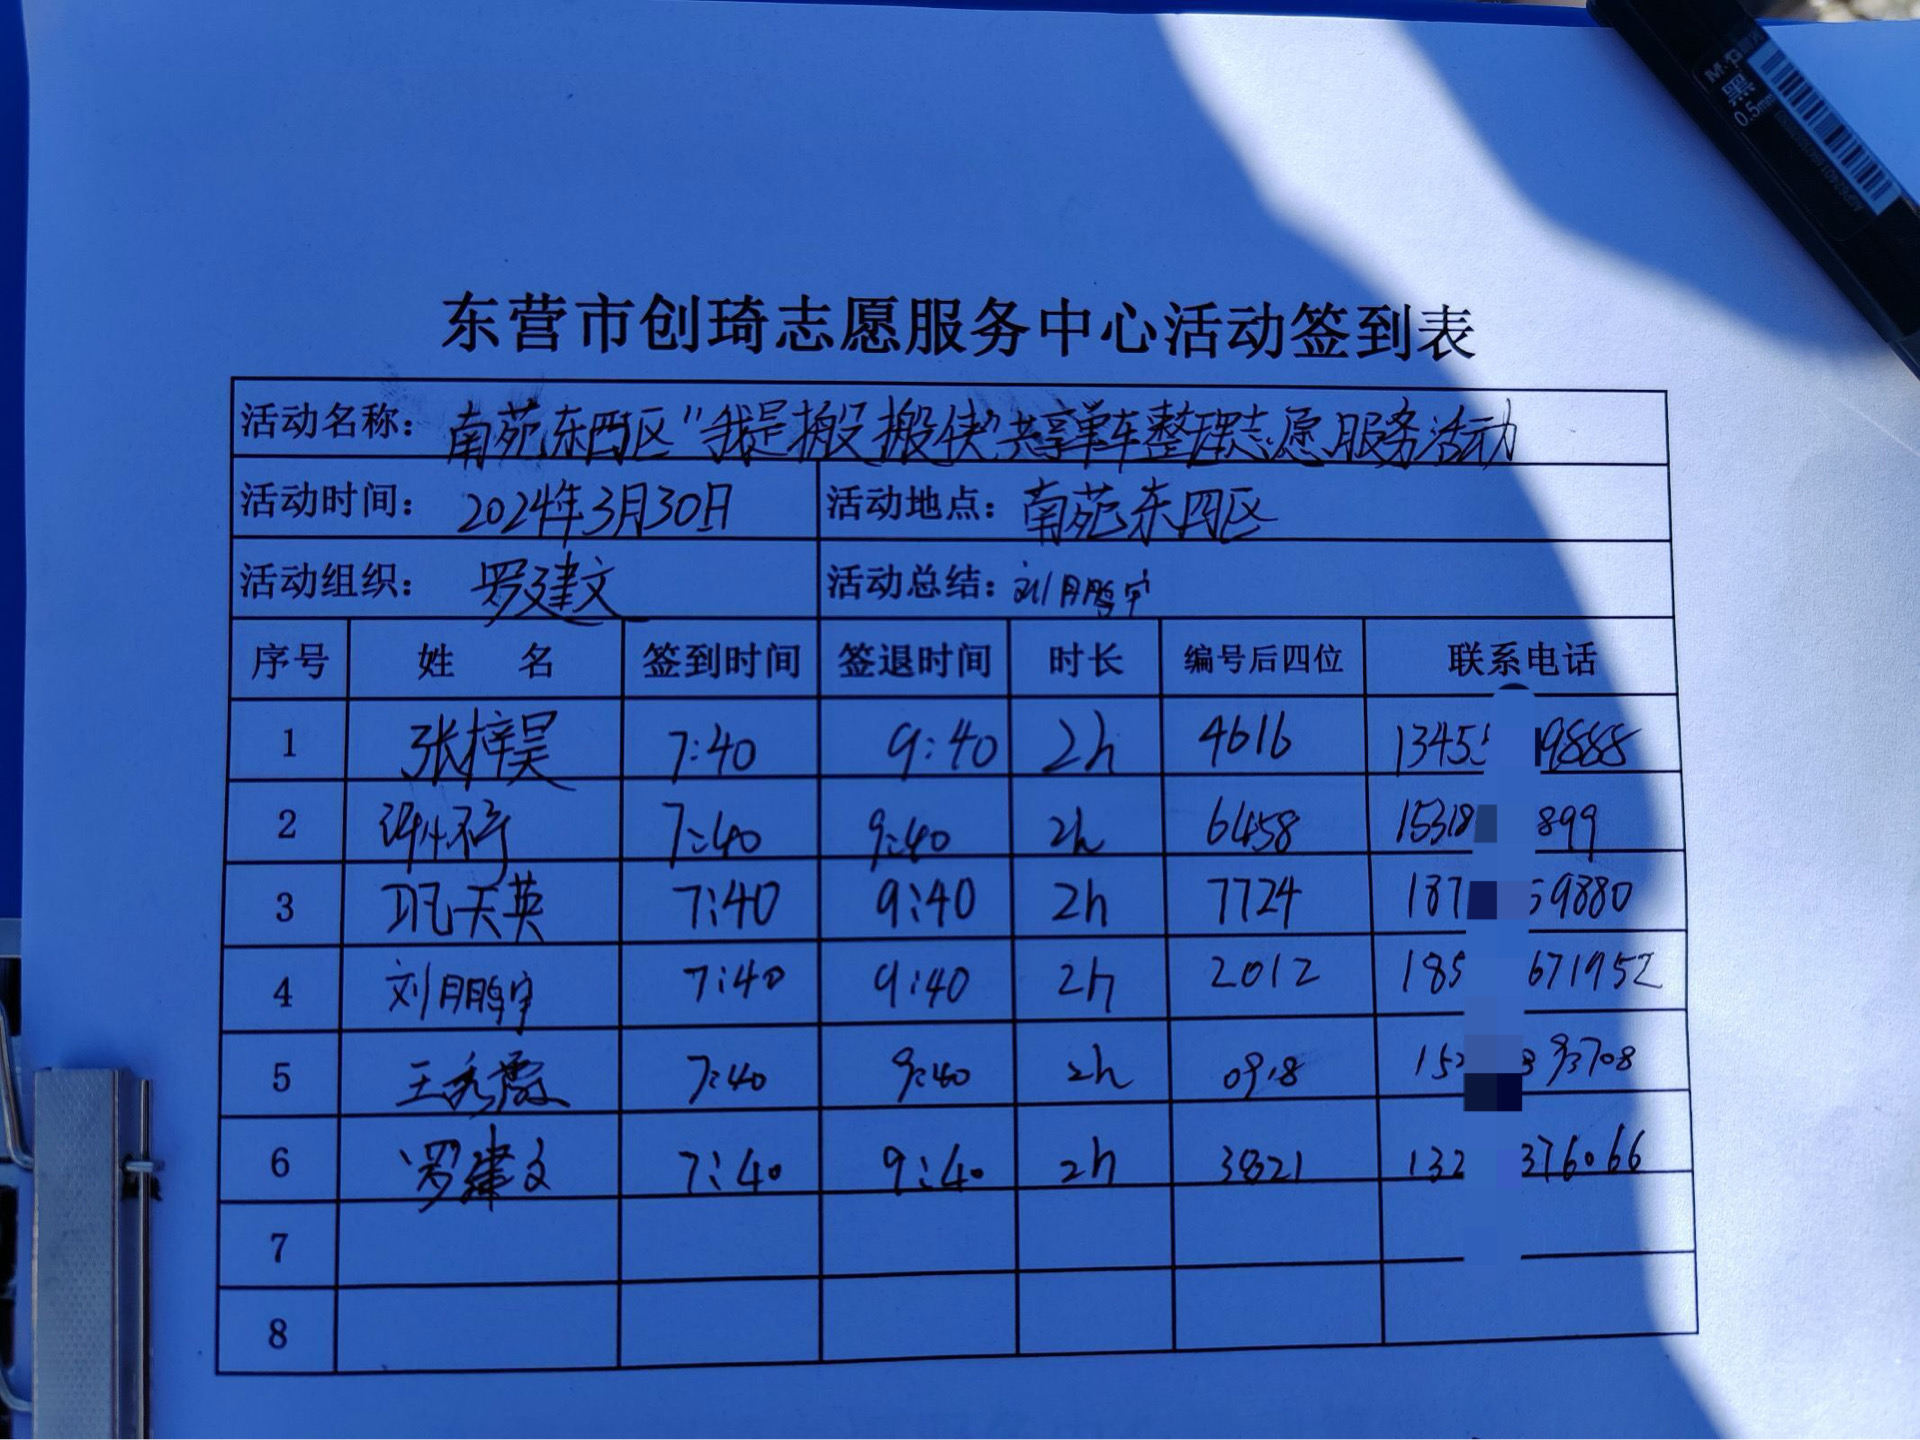 M&G
黑
0.5mm
东营市创琦志愿服务中心活动签到表
活动名称: 南苑东西区"我是搬搬侠"共享单车整理志愿服务活动
活动时间: 2024年3月30日 活动地点: 南苑东四区
活动组织: 罗建文 活动总结: 刘月鹏宇
序号 姓 名 签到时间 签退时间 时长 编号后四位 联系电话
1 张梓昊 7:40 9:40 2h 4616 1345 19888
2 7:40 9:40 2h 6458 15318 899
3 巩天英 7:40 9:40 2h 7724 187 59880
4 刘月鹏宇 7:40 9:40 2h 2012 185 671952
5 王秀霞 7:40 9:40 2h 0918 152 93708
6 罗建文 7:40 9:40 2h 3821 132 376066
7
8